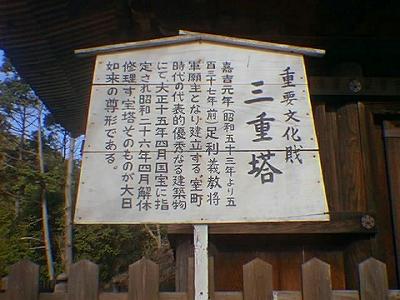 重要文化財
三重塔
嘉吉元年（昭和五十三年より五
百三十七年前）足利義教将
軍願主となり建立する室町
時代の代表的優秀なる建築物
にて大正十五年四月国宝に指
定され昭和二十六年四月解体
修理す宝塔そのものが大日
如来の尊形である。